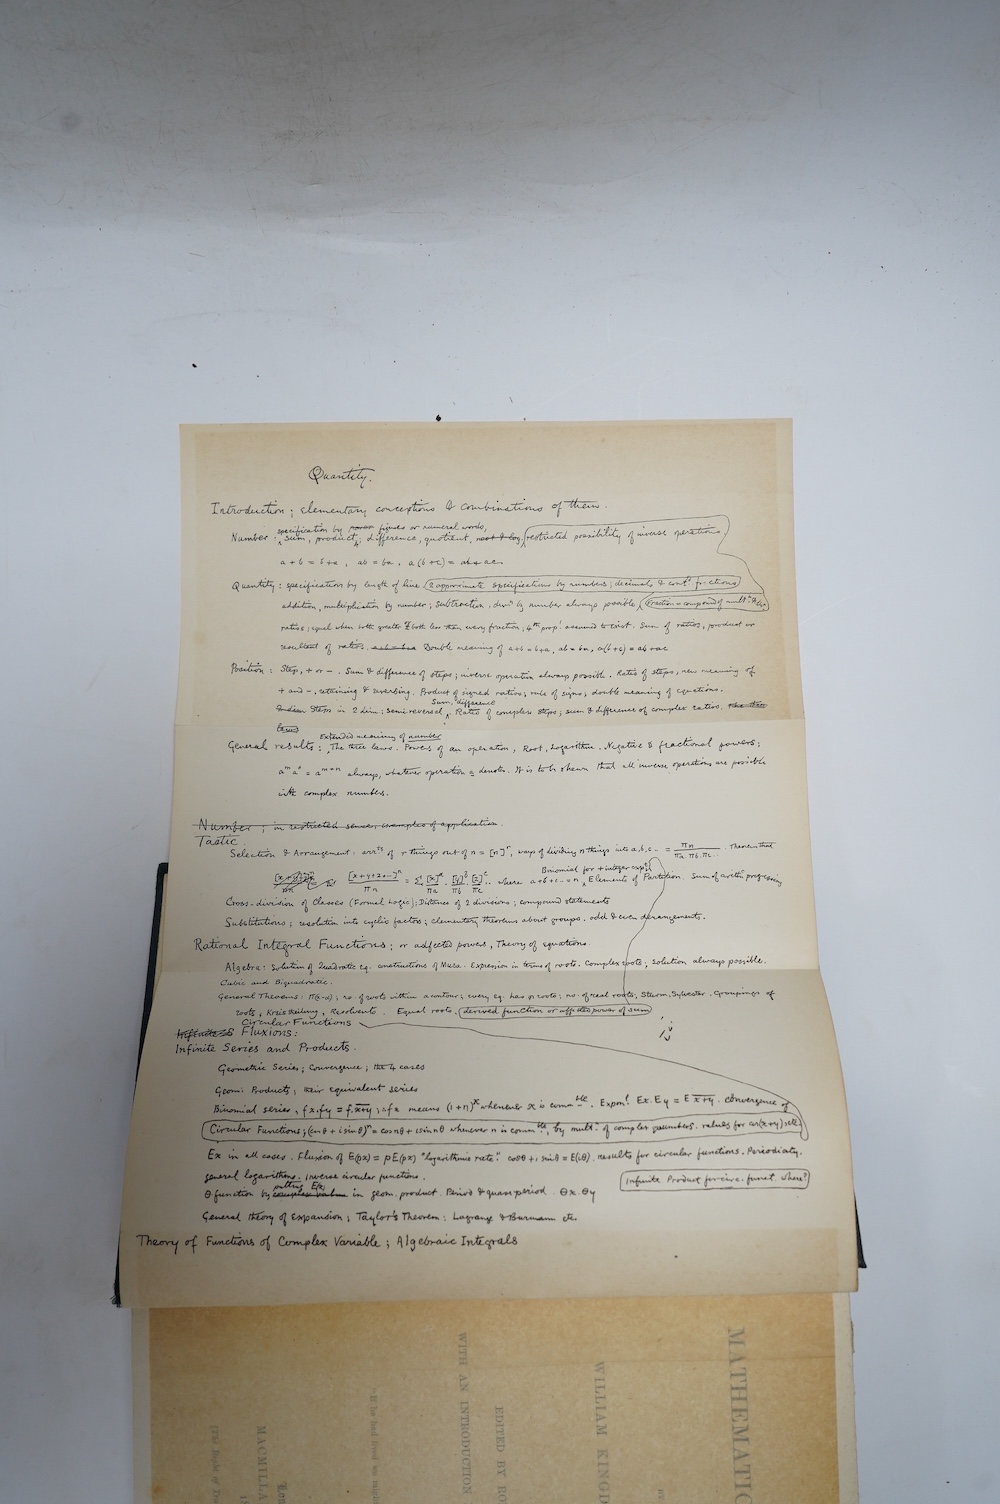 Quantity.
Introduction; Elementary conceptions & combinations of them.
specification by figures or numeral words,
Number: sum, product; difference, quotient, root & log, restricted possibility of inverse operations
a + b = b + a, ab = ba, a(b+c) = ab + ac.
Quantity: specification by length of line (2 approximate specifications by numbers; decimals & cont^d fractions)
addition, multiplication by number; subtraction, div^n by number always possible, (Fraction a compound of mult^n &
ratios; equal when both greater & both less than every fraction; 4th prop^l assumed to exist. Sum of ratios, product or
resultant of ratios. Double meaning of a+b = b+a, ab = ba, a(b+c) = ab+ac
Position: Step, + or −. Sum & difference of steps; inverse operation always possible. Ratio of steps, new meaning of
+ and −, retaining & reversing. Product of signed ratios; rule of signs; double meaning of equations.
Sum, difference
Steps in 2 dim; semi reversal, Ratio of complex steps; sum & difference of complex ratios.
Extended meaning of number
General results: The three laws. Powers of an operation, Root, Logarithm. Negative & fractional powers;
a^m a^n = a^m+n always, whatever operation a denotes. It is to be shewn that all inverse operations are possible
with complex numbers.
Number; in restricted sense, examples of application.
Tactic
Selection & Arrangement. arr^ts of r things out of n = [n]^r, ways of dividing n things into a, b, c.. = Πn / Πa. Πb. Πc... Theorem that
Binomial for + integer exp^t
[x+y+z+..]^n / Πn = Σ [x]^a / Πa [y]^b / Πb [z]^c / Πc .. where a+b+c.. = n Elements of Partition. Sum of arith progressions
Cross-division of Classes (Formal Logic); Distance of 2 divisions; compound statements
Substitutions; resolution into cyclic factors; elementary theorems about groups. odd & even derangements.
Rational Integral Functions; or affected powers, Theory of equations.
Algebra: Solution of Quadratic eq. constructions of Musa. Expression in terms of roots. Complex roots, solution always possible.
Cubic and Biquadratic.
General Theorems. Π(x-a); no. of roots within a contour; every eq. has n roots; no. of real roots, Sturm, Sylvester. Groupings of
roots, Kreistheilung, Resolvents. Equal roots, (derived function or affected power of sum)
Circular Functions
Infinite S Fluxions:
Infinite Series and Products.
Geometric Series; Convergence; the 4 cases
Geom. Products, their equivalent series
Binomial series, fx.fy = f.x+y, ∴ fx means (1+n)^x whenever x is comm^ble. Expon^l Ex. Ey = E x+y. convergence of
Circular Functions; (cosθ + i sinθ)^n = cos nθ + i sin nθ whenever n is comm^ble, by mult^n of complex numbers. values for cos(x+y) etc.
Ex in all cases. Fluxion of E(px) = pE(px) "logarithmic rate." cosθ + i sinθ = E(iθ). results for circular functions. Periodicity.
general logarithms. inverse circular functions.
Infinite Product for circ. funct. where?
putting Ex
θ function by in geom. product. Period & quasi period. Θx. Θy
General theory of expansion; Taylor's Theorem: Lagrange & Burmann etc.
Theory of Functions of Complex Variable; Algebraic Integrals
MATHEMATIC
WILLIAM KINGD
EDITED BY RO
WITH AN INTRODUCTION
"If he had lived we might
MACMILLA